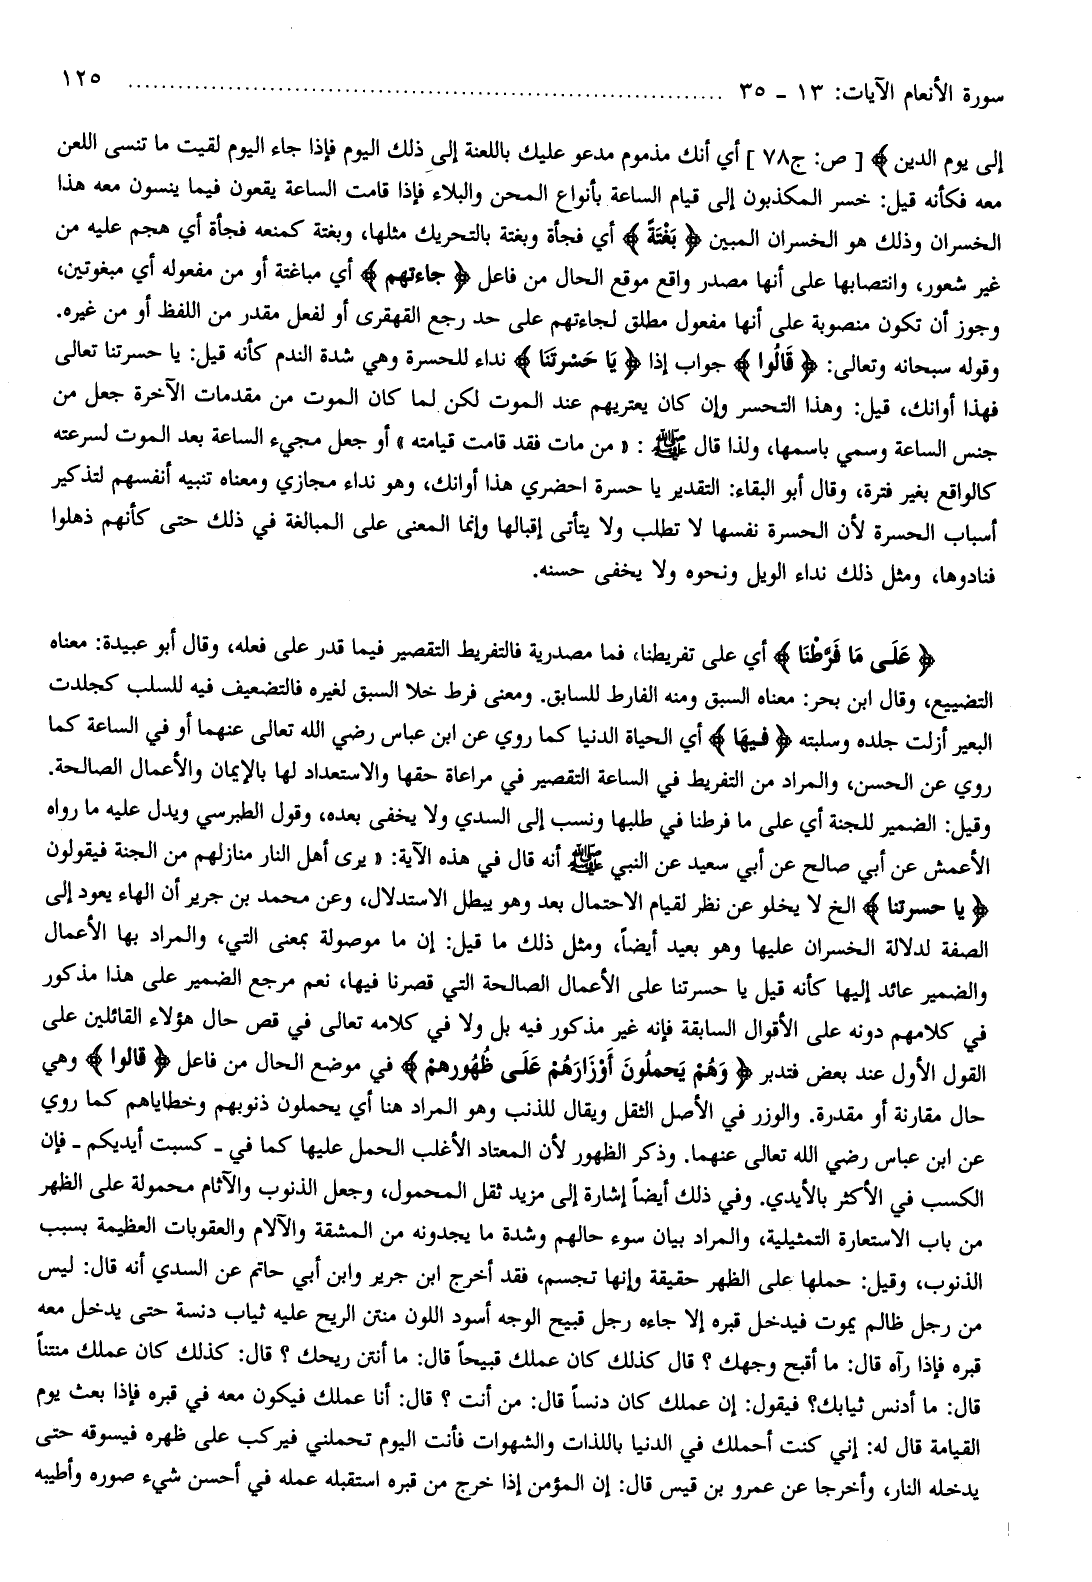 سورة الأنعام الآيات: ١٣ ـ ٣٥ ........................................ ١٢٥
إلى يوم الدين ﴾ [ ص: ج٧٨ ] أي أنك مذموم مدعو عليك باللعنة إلى ذلك اليوم فإذا جاء اليوم لقيت ما تنسى اللعن
معه فكأنه قيل: خسر المكذبون إلى قيام الساعة بأنواع المحن والبلاء فإذا قامت الساعة يقعون فيما ينسون معه هذا
الخسران وذلك هو الخسران المبين ﴿ بَغْتَةً ﴾ أي فجأة وبغتة بالتحريك مثلها، وبغتة كمنعه فجأة أي هجم عليه من
غير شعور، وانتصابها على أنها مصدر واقع موقع الحال من فاعل ﴿ جاءتهم ﴾ أي مباغتة أو من مفعوله أي مبغوتين،
وجوز أن تكون منصوبة على أنها مفعول مطلق لجاءتهم على حد رجع القهقرى أو لفعل مقدر من اللفظ أو من غيره.
وقوله سبحانه وتعالى: ﴿ قَالُوا ﴾ جواب إذا ﴿ يَا حَسْرتَنَا ﴾ نداء للحسرة وهي شدة الندم كأنه قيل: يا حسرتنا تعالى
فهذا أوانك، قيل: وهذا التحسر وإن كان يعتريهم عند الموت لكن لما كان الموت من مقدمات الآخرة جعل من
جنس الساعة وسمي باسمها، ولذا قال ﷺ : « من مات فقد قامت قيامته » أو جعل مجيء الساعة بعد الموت لسرعته
كالواقع بغير فترة، وقال أبو البقاء: التقدير يا حسرة احضري هذا أوانك، وهو نداء مجازي ومعناه تنبيه أنفسهم لتذكير
أسباب الحسرة لأن الحسرة نفسها لا تطلب ولا يتأتى إقبالها وإنما المعنى على المبالغة في ذلك حتى كأنهم ذهلوا
فنادوها، ومثل ذلك نداء الويل ونحوه ولا يخفى حسنه.
﴿ عَلَى مَا فَرَّطْنَا ﴾ أي على تفريطنا، فما مصدرية فالتفريط التقصير فيما قدر على فعله، وقال أبو عبيدة: معناه
التضييع، وقال ابن بحر: معناه السبق ومنه الفارط للسابق. ومعنى فرط خلا السبق لغيره فالتضعيف فيه للسلب كجلدت
البعير أزلت جلده وسلبته ﴿ فيهَا ﴾ أي الحياة الدنيا كما روي عن ابن عباس رضي الله تعالى عنهما أو في الساعة كما
روي عن الحسن، والمراد من التفريط في الساعة التقصير في مراعاة حقها والاستعداد لها بالإيمان والأعمال الصالحة.
وقيل: الضمير للجنة أي على ما فرطنا في طلبها ونسب إلى السدي ولا يخفى بعده، وقول الطبرسي ويدل عليه ما رواه
الأعمش عن أبي صالح عن أبي سعيد عن النبي ﷺ أنه قال في هذه الآية: « يرى أهل النار منازلهم من الجنة فيقولون
﴿ يا حسرتنا ﴾ الخ لا يخلو عن نظر لقيام الاحتمال بعد وهو يبطل الاستدلال، وعن محمد بن جرير أن الهاء يعود إلى
الصفة لدلالة الخسران عليها وهو بعيد أيضاً، ومثل ذلك ما قيل: إن ما موصولة بمعنى التي، والمراد بها الأعمال
والضمير عائد إليها كأنه قيل يا حسرتنا على الأعمال الصالحة التي قصرنا فيها، نعم مرجع الضمير على هذا مذكور
في كلامهم دونه على الأقوال السابقة فإنه غير مذكور فيه بل ولا في كلامه تعالى في قص حال هؤلاء القائلين على
القول الأول عند بعض فتدبر ﴿ وَهُمْ يَحملُونَ أَوْزَارَهُمْ عَلَى ظُهُورهمْ ﴾ في موضع الحال من فاعل ﴿ قالوا ﴾ وهي
حال مقارنة أو مقدرة. والوزر في الأصل الثقل ويقال للذنب وهو المراد هنا أي يحملون ذنوبهم وخطاياهم كما روي
عن ابن عباس رضي الله تعالى عنهما. وذكر الظهور لأن المعتاد الأغلب الحمل عليها كما في ـ كسبت أيديكم ـ فإن
الكسب في الأكثر بالأيدي. وفي ذلك أيضاً إشارة إلى مزيد ثقل المحمول، وجعل الذنوب والآثام محمولة على الظهر
من باب الاستعارة التمثيلية، والمراد بيان سوء حالهم وشدة ما يجدونه من المشقة والآلام والعقوبات العظيمة بسبب
الذنوب، وقيل: حملها على الظهر حقيقة وإنها تجسم، فقد أخرج ابن جرير وابن أبي حاتم عن السدي أنه قال: ليس
من رجل ظالم يموت فيدخل قبره إلا جاءه رجل قبيح الوجه أسود اللون منتن الريح عليه ثياب دنسة حتى يدخل معه
قبره فإذا رآه قال: ما أقبح وجهك ؟ قال كذلك كان عملك قبيحاً قال: ما أنتن ريحك ؟ قال: كذلك كان عملك منتناً
قال: ما أدنس ثيابك؟ فيقول: إن عملك كان دنساً قال: من أنت ؟ قال: أنا عملك فيكون معه في قبره فإذا بعث يوم
القيامة قال له: إني كنت أحملك في الدنيا باللذات والشهوات فأنت اليوم تحملني فيركب على ظهره فيسوقه حتى
يدخله النار، وأخرجا عن عمرو بن قيس قال: إن المؤمن إذا خرج من قبره استقبله عمله في أحسن شيء صوره وأطيبه